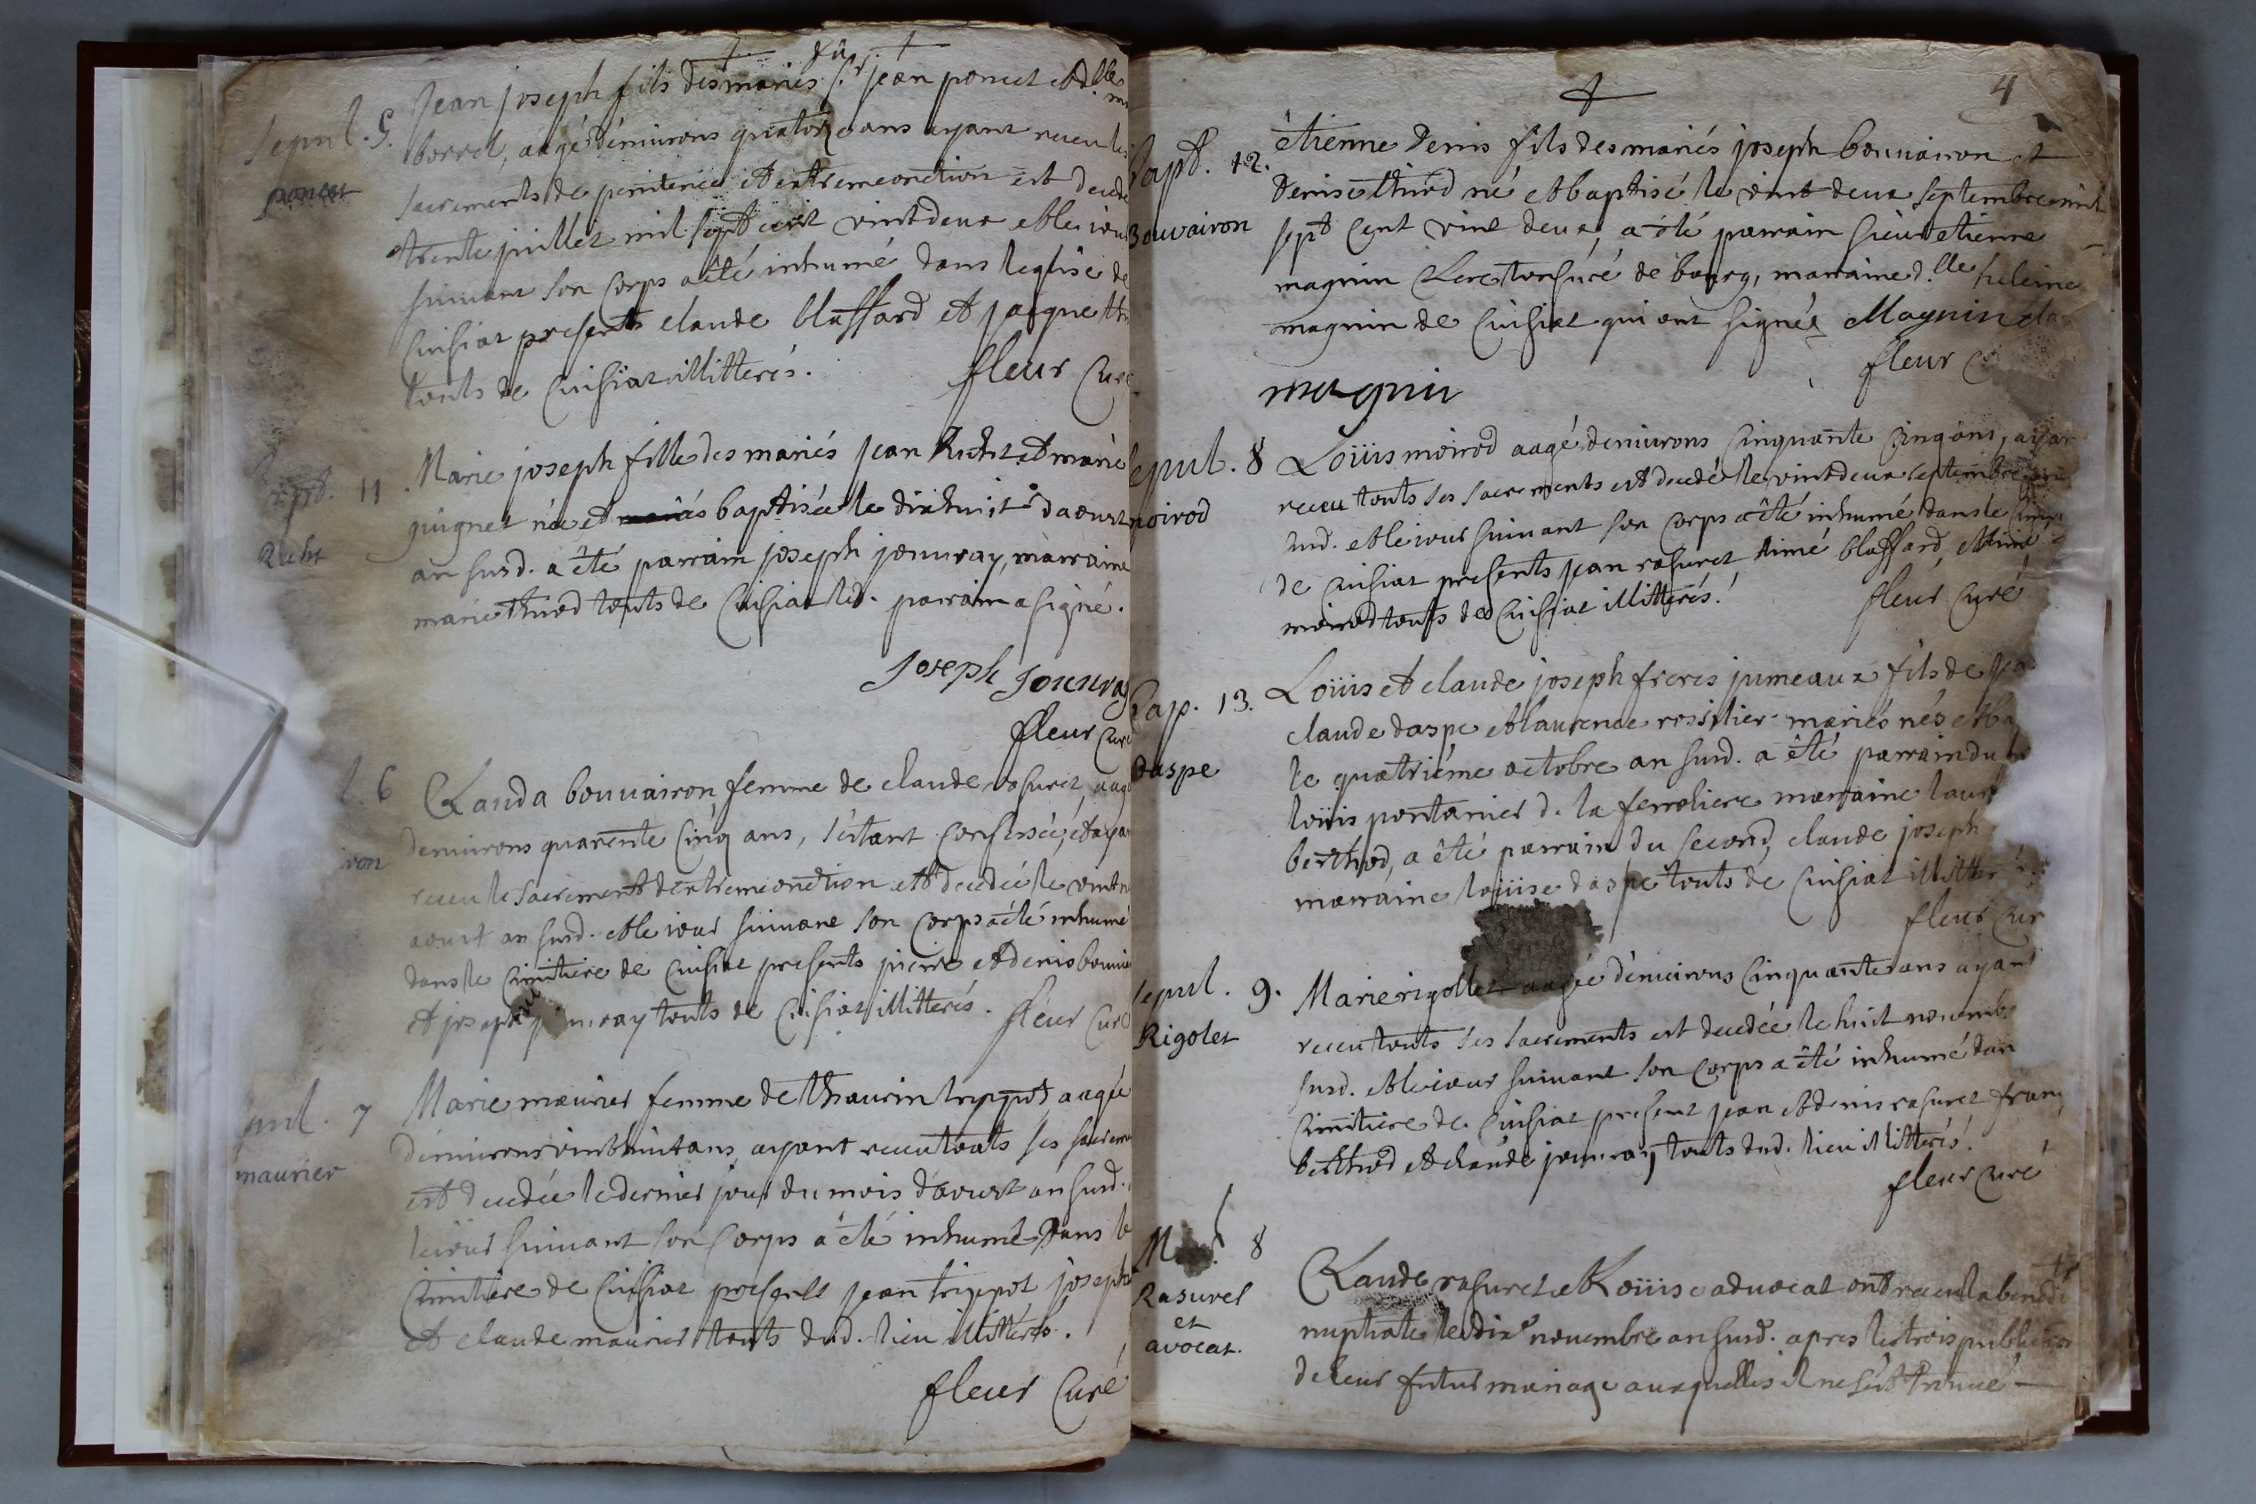 Jean joseph fils des mariés Sr. jean poncet et dlle
Sepul. 5.
borrel, aagé denuirons quatorze ans ayant receu les
poncet
sacrements de penitence et extremeonction est decedé
trente juillet mil sept cent vint deux et le iour
suiuant son corps a été inhumé dans leglise de
Cuisiat presents claude blaffard et jacque
touts de Cuisiat illitterés.
fleur Curé
Marie joseph fille des mariés jean Richt et marie
11
guignet née et baptisée le dixhuit daoust
Richt
an susd. a été parrain joseph jouuray, marraine
marie thiod touts de Cuisiat led. parrain a signé.
Joseph Jouuray
fleur Curé
6
Clauda bouuairon femme de claude rasurel, aag
iron
denuirons quarente Cinq ans, s'estant confessée, et ayan
receu le sacrement dextremeonction est decedée le vint
aoust an susd. et le iour suiuant son corps a été inhumé
dans le Cimitiere de Cuisiat presents pierre et denis bouuai
et joseph jouuray touts de Cuisiat illitterés. fleur Curé
7
Marie maurier femme de thaurin trippot aagée
maurier
denuirons vint huit ans, ayant receu touts ses sacrem
est decedée le dernier jour du mois d'aoust an susd.
le iour suiuant son Corps a été inhumé Dans le
Cimitiere de Cuisiat presents jean trippot joseph
et claude maurier touts dud. lieu illitterés.
fleur Curé
4
étienne denis fils des mariés joseph bouuairon et
Bapt. 12.
denise thiod né et baptisé le vint deux septembre mil
Bouvairon
sept cent vint deux, a été parrain sieur etienne
magnin Clerc tonsuré de bourg, marraine dlle heleine
magnin de Cuisiat qui ont signés Magnin
fleur
magnin
sepul. 8
Loüis moirod aagé denuirons Cinquante Cinq ans, ayan
moirod
receu touts ses sacrements est decedé le vint deux septembre an
susd. et le iour suiuant son corps a été inhumé dans le
de Cuisiat presents jean rasurel Aimé blaffard, et
moirod touts de Cuisiat illitterés.
fleur Curé
Bap. 13.
Loüis et claude joseph freres jumeaux fils de
claude daspe et laurence rossilier mariés nés et ba
daspe
le quatriéme octobre an susd. a été parrain du
loüis pontanier d. la ferroliere marraine laur
berthod, a été parrain du second, claude joseph
marraine loüise daspe touts de Cuisiat illitter
fleur Cur
sepul. 9.
Marie rigollet aagée denuirons Cinquante ans ayant
Rigolet
receu touts ses sacrements est decedée le huit nouemb
susd. et le iour suiuant son Corps a été inhumé dan
Cimitiere de Cuisiat present jean et denis rasurel fran
berthod et claude jouuray touts dud. lieu illitterés.
fleur Curé
8
Rasurel
et
avocat.
Claude rasurel et Loüise aduocat ont receu la bened
nuptiale le dixe nouembre an susd. apres les trois publica
de leur futur mariage auxquelles il ne s'est trouué